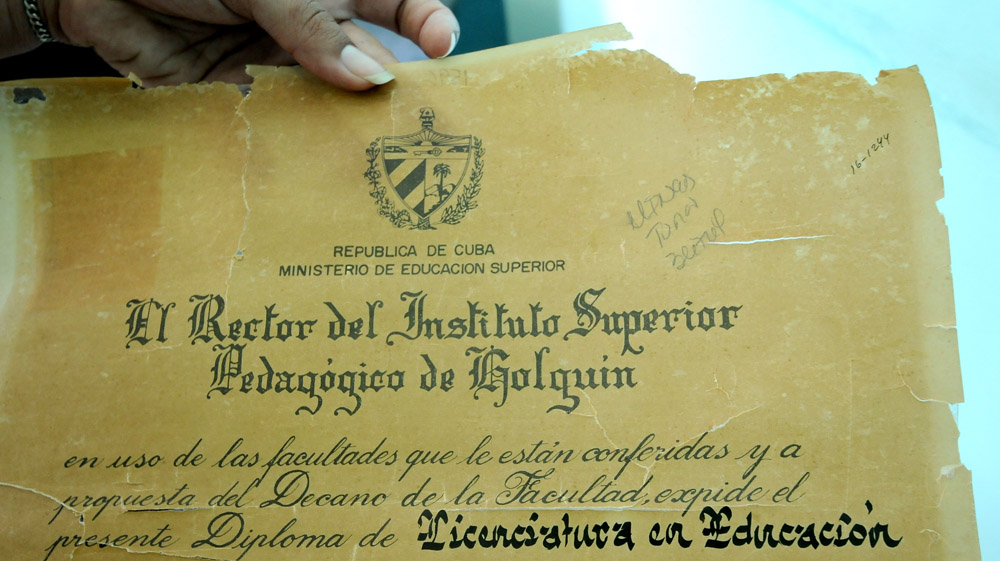 16-1244
REPUBLICA DE CUBA
MINISTERIO DE EDUCACION SUPERIOR
El Rector del Instituto Superior
Pedagógico de Holguin
en uso de las facultades que le están conferidas y a
propuesta del Decano de la Facultad, expide el
presente Diploma de Licenciatura en Educación